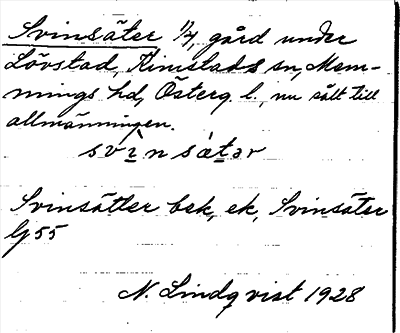 Svinsäter 1/4, gård under
Lövstad, Kimstads sn, Mem-
mings hd, Österg. l., nu sålt till
allmänningen.
svìn sǽtər
Svinsätter bek, ek, Svinsäter
Gs 55
N. Lindqvist 1928